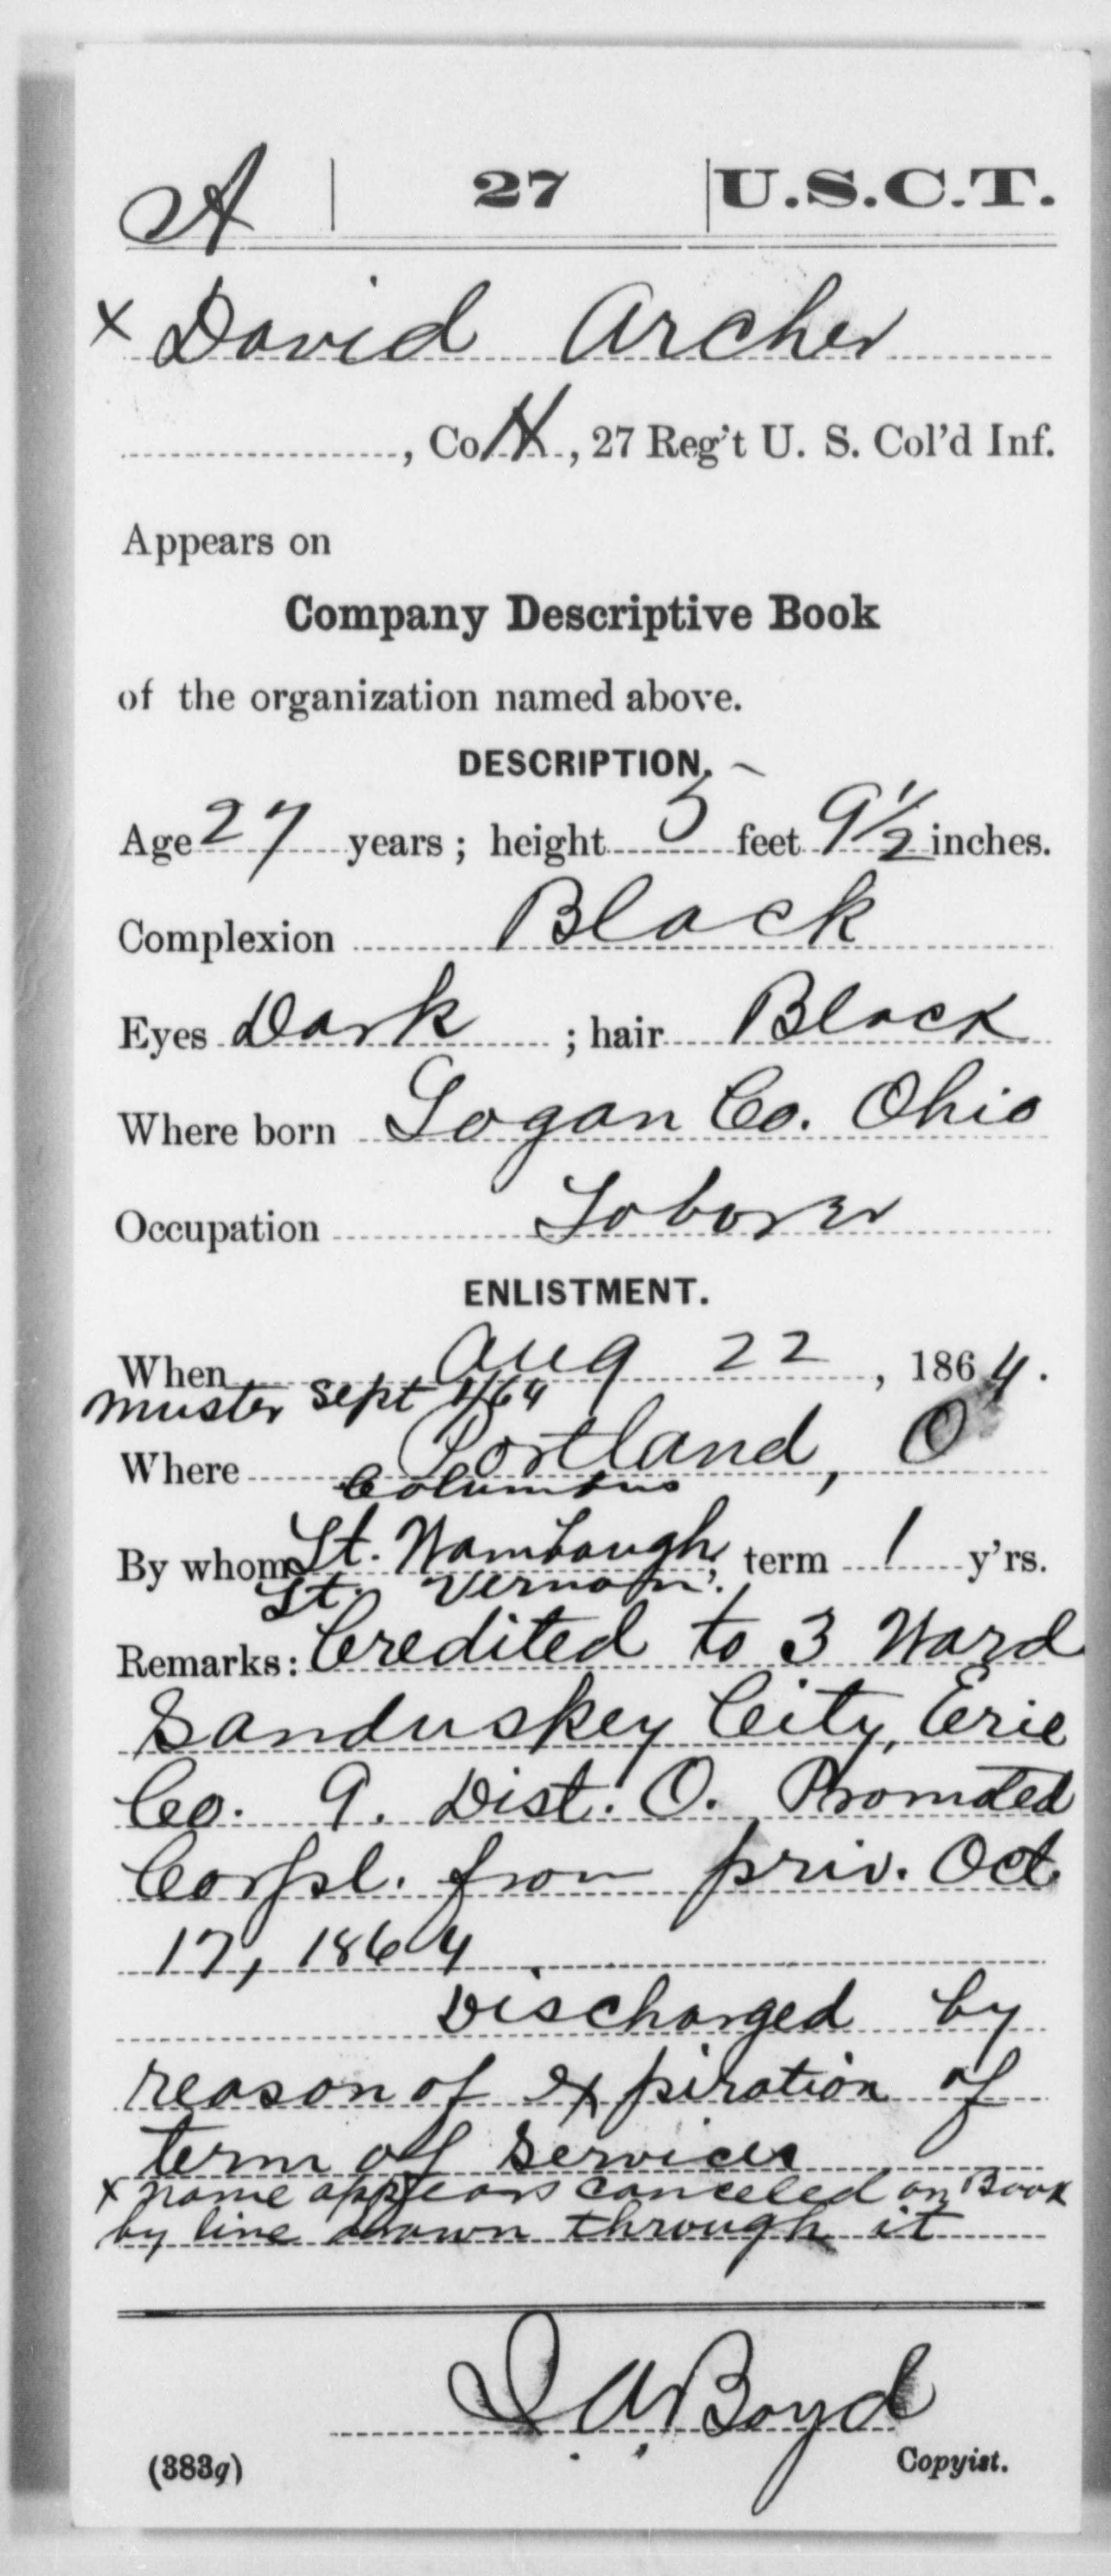 A | 27 | U.S.C.T.
x David Archer
, Co. H, 27 Reg't U. S. Col'd Inf.
Appears on
Company Descriptive Book
of the organization named above.
DESCRIPTION.
Age 27 years; height 5 feet 9 1/2 inches.
Complexion Black
Eyes Dark ; hair Black
Where born Logan Co. Ohio
Occupation Laborer
ENLISTMENT.
When Aug 22, 1864.
Muster Sept 1/64
Where Portland, O
Columbus
By whom Lt. Wambaugh, term 1 y'rs.
Lt. Vernon.
Remarks: Credited to 3 Ward
Sanduskey City, Erie
Co. 9. Dist. O. Promoted
Corpl. from priv. Oct.
17, 1864.
Discharged by
reason of expiration of
term of service
x name appears canceled on Book
by line drawn through it
Boyd
(383g) Copyist.